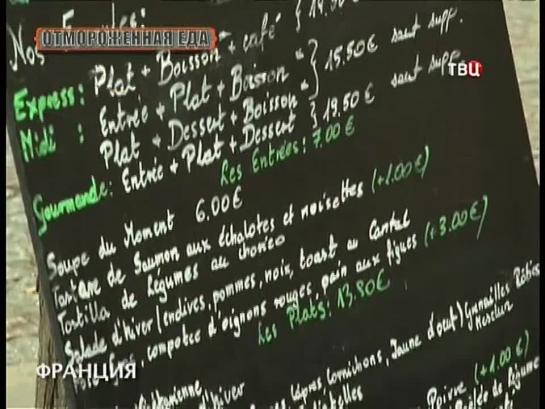 ОТМОРОЖЕННАЯ ЕДА
ТВЦ
Nos
Express: Plat + Boisson + café
Midi : Entrée + Plat + Boisson } 15.50€ sauf supp.
Plat + Dessert + Boisson
Gourmande: Entrée + Plat + Dessert } 19.50€ sauf supp.
Les Entrées: 7.00€
Soupe du Moment 6.00€
Tartare de Saumon aux échalotes et noisettes (+1.00€)
Tortilla de Légumes au chorizo
Salade d'hiver (endives, pommes, noix, toast au Cantal
Foie Gras, compotée d'oignons rouges, pain aux figues (+3.00€)
Les Plats: 13.80€
Câpres Cornichons, Jaune d'oeuf) Grenailles Rôties
Mesclun
d'hiver
Poivre (+1.00€)
ФРАНЦИЯ